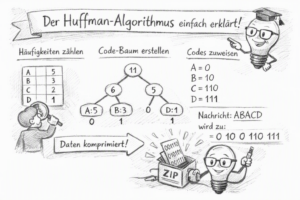 Der Huffman-Algorithmus einfach erklärt!
Häufigkeiten zählen
A 5
B 3
C 2
D 1
Code-Baum erstellen
11
6 5
A:5 B:3 5 D:1
0 1 0 1
Codes zuweisen
A = 0
B = 10
C = 110
D = 111
Nachricht: ABACD
wird zu:
= 0 10 0 110 111
Daten komprimiert!
ZIP